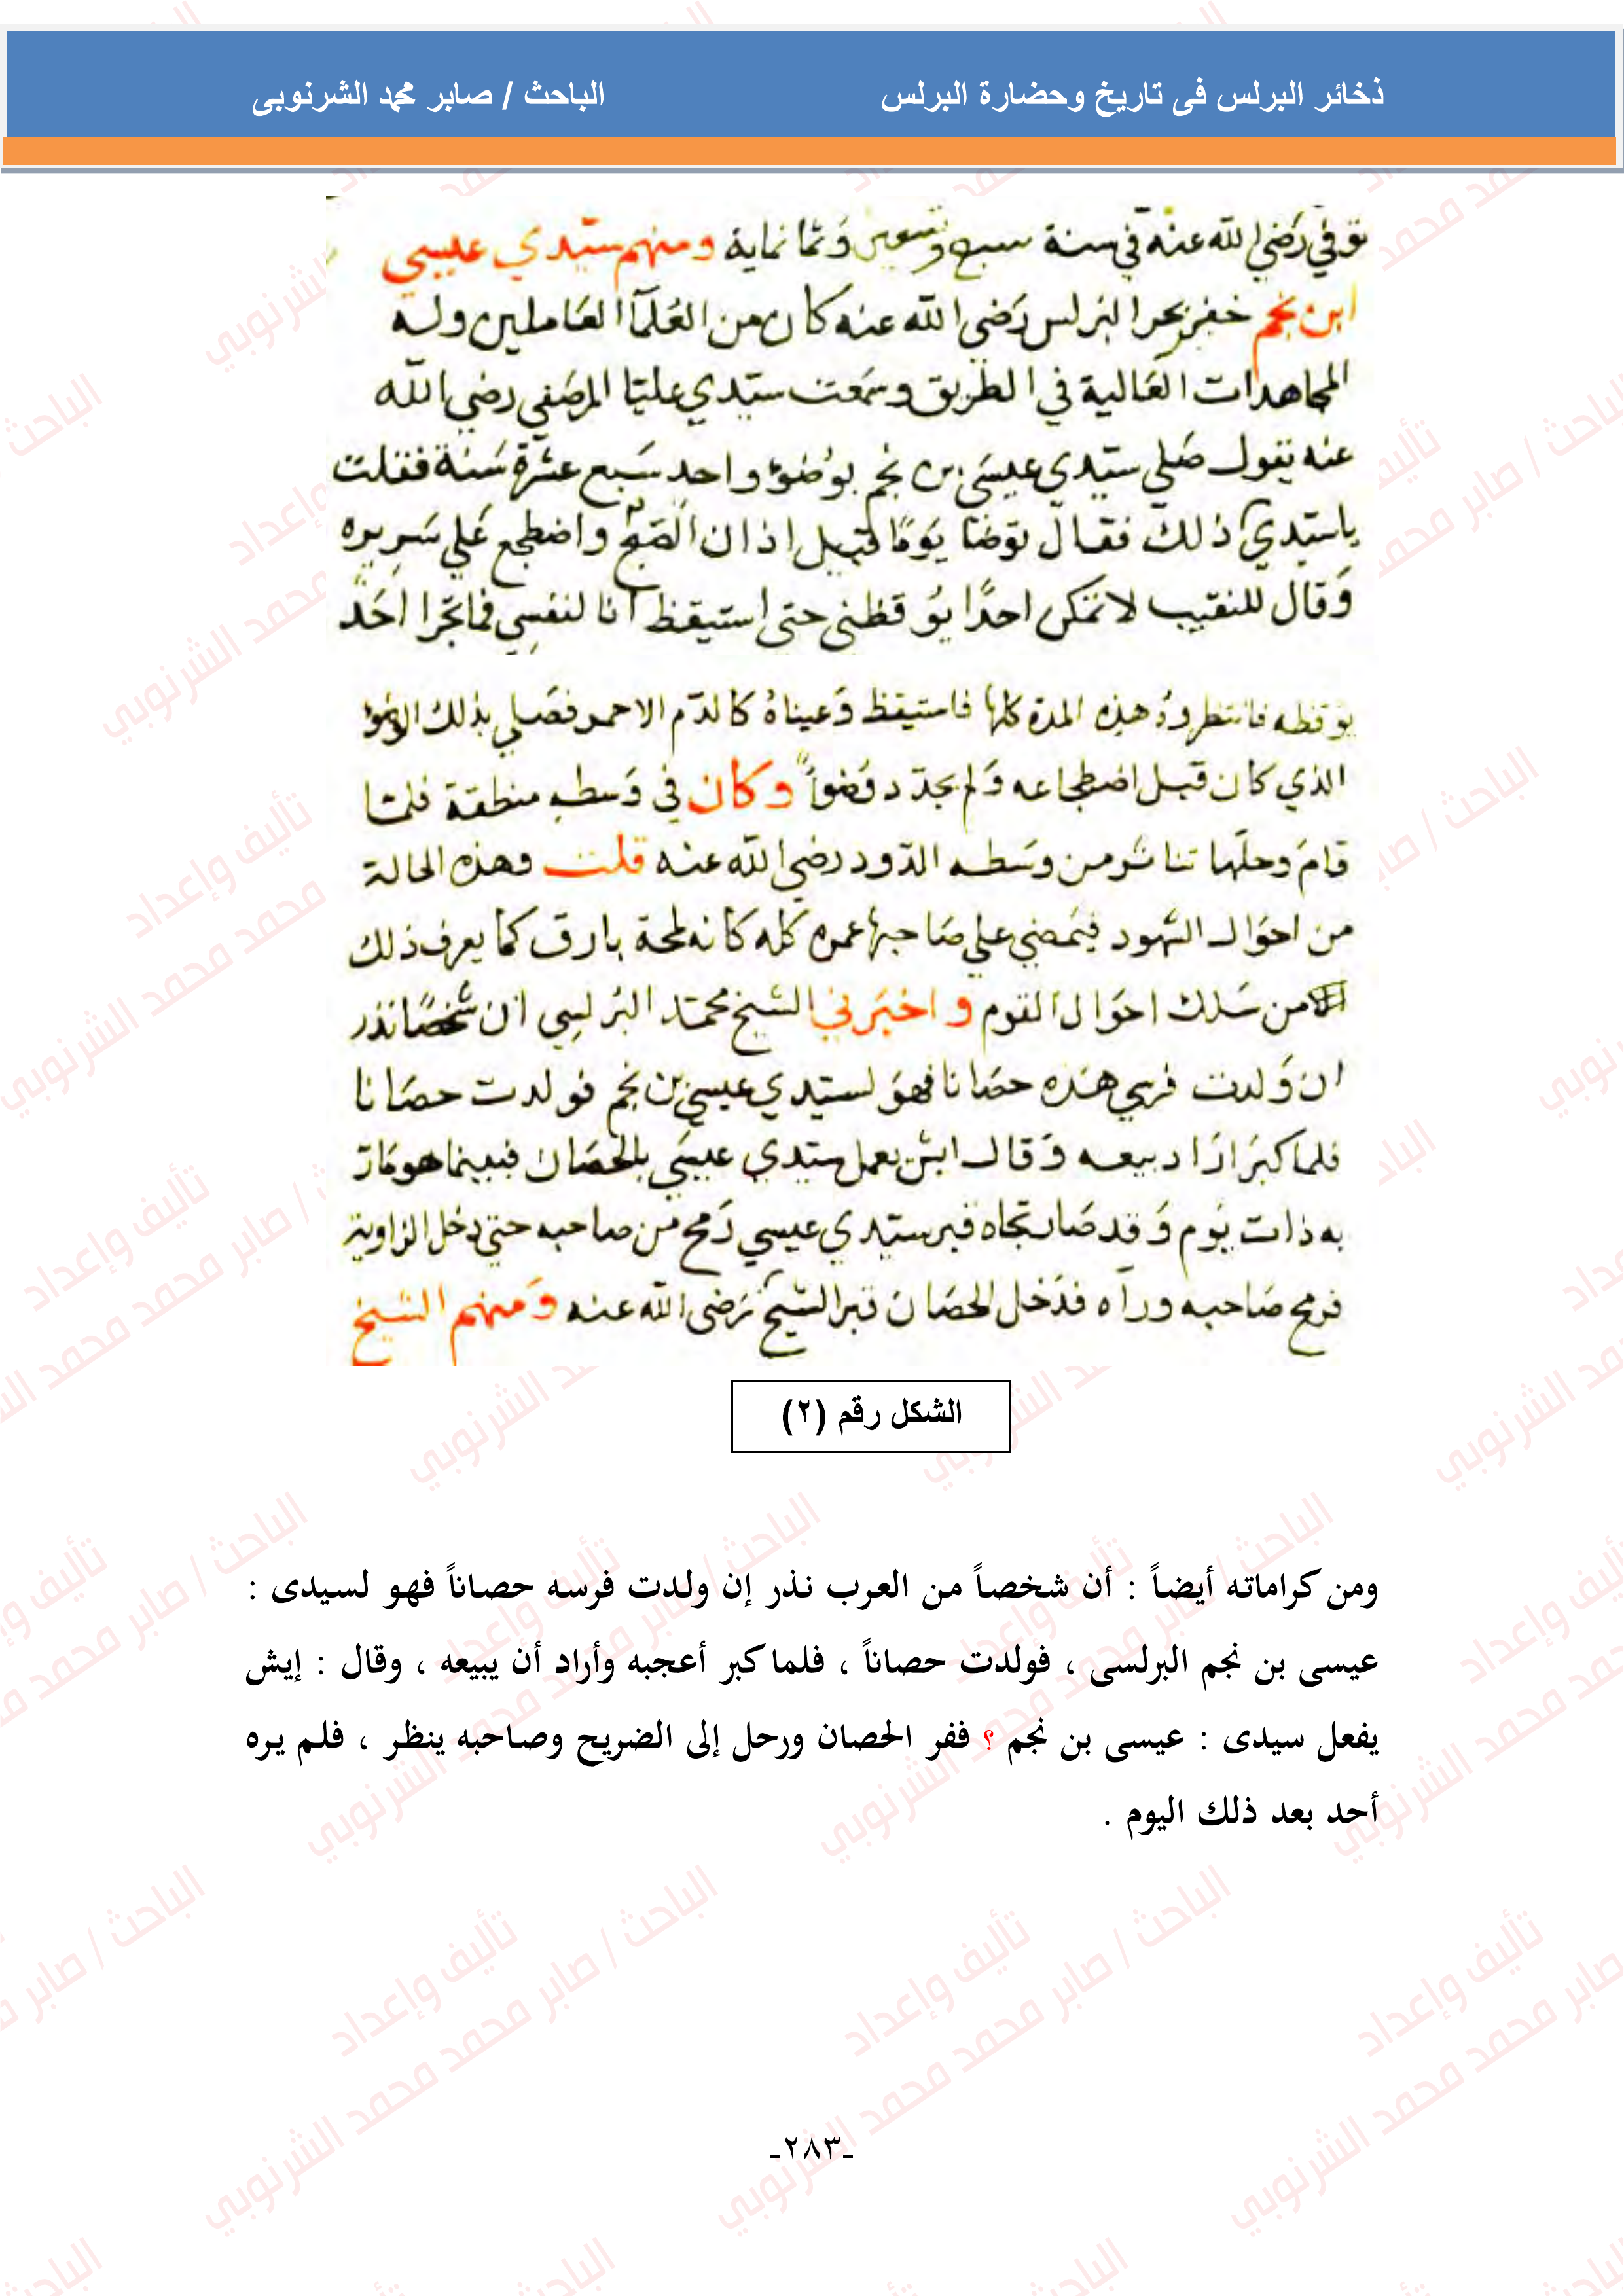 ذخائر البرلس فى تاريخ وحضارة البرلس الباحث / صابر محمد الشرنوبى
توفي رَضي الله عنه في سنة سبع وتسعين وَثمانماية ومنهم سيّدي عيسي
ابن نجم خفير بحر البرلس رَضي الله عنه كان من العُلمآ العَاملين وله
المجاهدات العَالية في الطريق وسمَعت سيّدي عليّا المرصَفي رضي الله
عنه يقول صَلي سيّدي عيسَي بن نجم بوُضوُء واحد سَبع عشرة سَنة فقلت
ياسيّدي ذلك فقال توَضا يَومًا قبيل اذان الصّبح واضطجع عَلي سَريره
وَقال للنقيب لا تمكن احدًا يوُقظني حتي استيقظ انا لنفسِي فما تجّرا احَد
يوقظه فانتظروهُ هذه المدة كلها فاستيقظ وَعيناهُ كالدّم الاحمر فصَلي بذلك الوضوء
الذي كان قبل اضطجاعه وَلم يجدّد وُضوأً وكان في وَسطه منطقة فلمّا
قامَ وحلّها تناثر من وسَطه الدّود رضي الله عنه قلت وهذه الحالة
من احوَال الشهود فيَمضي علي صَاحبها عمره كله كانه لمحة بارق كما يعرف ذلك
من سَلك احوَال القوم واخبَرني الشيخ محمّد البُرلسِي ان شخصًا نذر
ان وَلدت فرسي هَذه حصَانا فهوَ لسيّدي عيسي بن نجم فولدت حصَانا
فلما كبرَ ارَاد بيعه وَقال ايش يعمل سيّدي عيسَي بالحصَان فبينما هو مَارّ
به ذات يَوم وَقد صَار تجاه قبر سيّدي عيسي رَمح من صاحبه حتي دخل الزاوية
فرمح صَاحبه ورآه فدَخل الحصَان قبر الشيخ رَضي الله عنه وَمنهم الشيخ
الشكل رقم (٢)
ومن كراماته أيضاً : أن شخصاً من العرب نذر إن ولدت فرسه حصاناً فهو لسيدى :
عيسى بن نجم البرلسى ، فولدت حصاناً ، فلما كبر أعجبه وأراد أن يبيعه ، وقال : إيش
يفعل سيدى : عيسى بن نجم ؟ ففر الحصان ورحل إلى الضريح وصاحبه ينظر ، فلم يره
أحد بعد ذلك اليوم .
-٢٨٣-